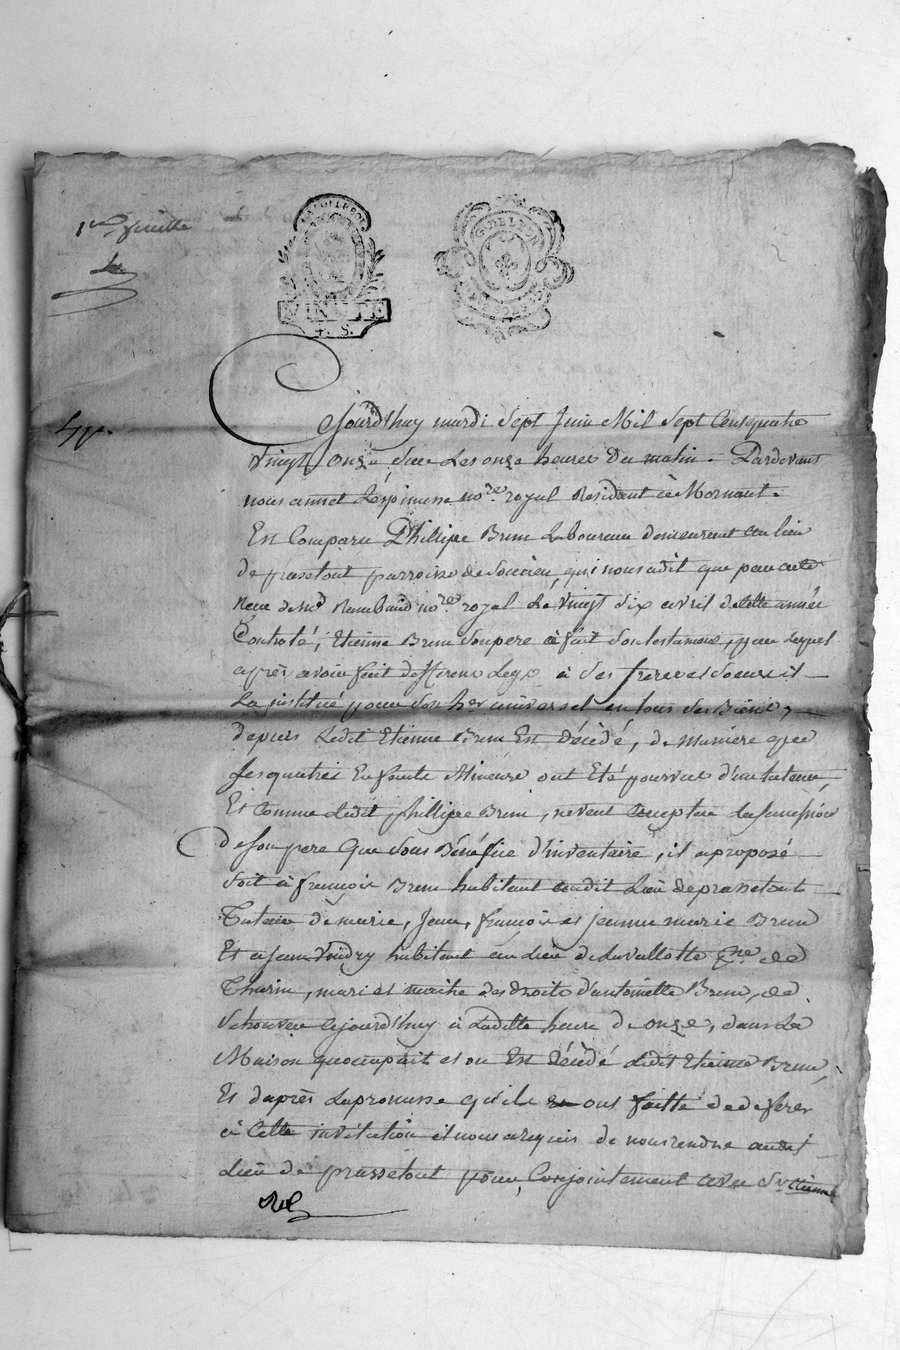 1ere feuille
G. DE LYON
VINGT
4. S.
Cejourdhuy mardi Sept Juin Mil Sept Cent quatre
vingt onze sur Les onze heures du matin. Pardevant
nous annet Lespinasse nore royal Résidant à Mornant.
Est Comparu Phillipe Brun Laboureur demeurant au lieu
de prassetout parroisse de Soucieu, qui nous a dit que par acte
Recu de Md Rambaud nore royal Le vingt six avril de cette année
Controlé, Etienne Brun Son pere a fait Son testament, par Lequel
après avoir fait differens Legs à Ses freres et Soeurs il
La institué pour Son her universel en tous Ses Biens,
depuis Ledit Etienne Brun Est Décédé, de maniere que
Ses quatres Enfants Mineurs ont Eté pourvus d'un tuteur,
Et Comme Ledit phillipe Brun, ne veut accepter La Succession
de Son pere Que Sous Bénéfice d'inventaire, il a proposé
Soit à françois Brun habitant audit Lieu de prassetout
Tuteur de marie, Jean, françois et jeanne marie Brun
Et a jean Voidry habitant au Lieu de Lavallotte pne de
Thurin, mari et maitre des droits d'antoinette Brun, de
Se trouver cejourdhuy à Laditte heure de onze, dans La
Maison qu'occupait et ou Est décédé Ledit Etienne Brun,
Et daprès La promesse qu'ils ont faitte de deferer
à Cette invitation il nous a requis de nous rendre audit
Lieu de prassetout pour, Conjointement avec Sr